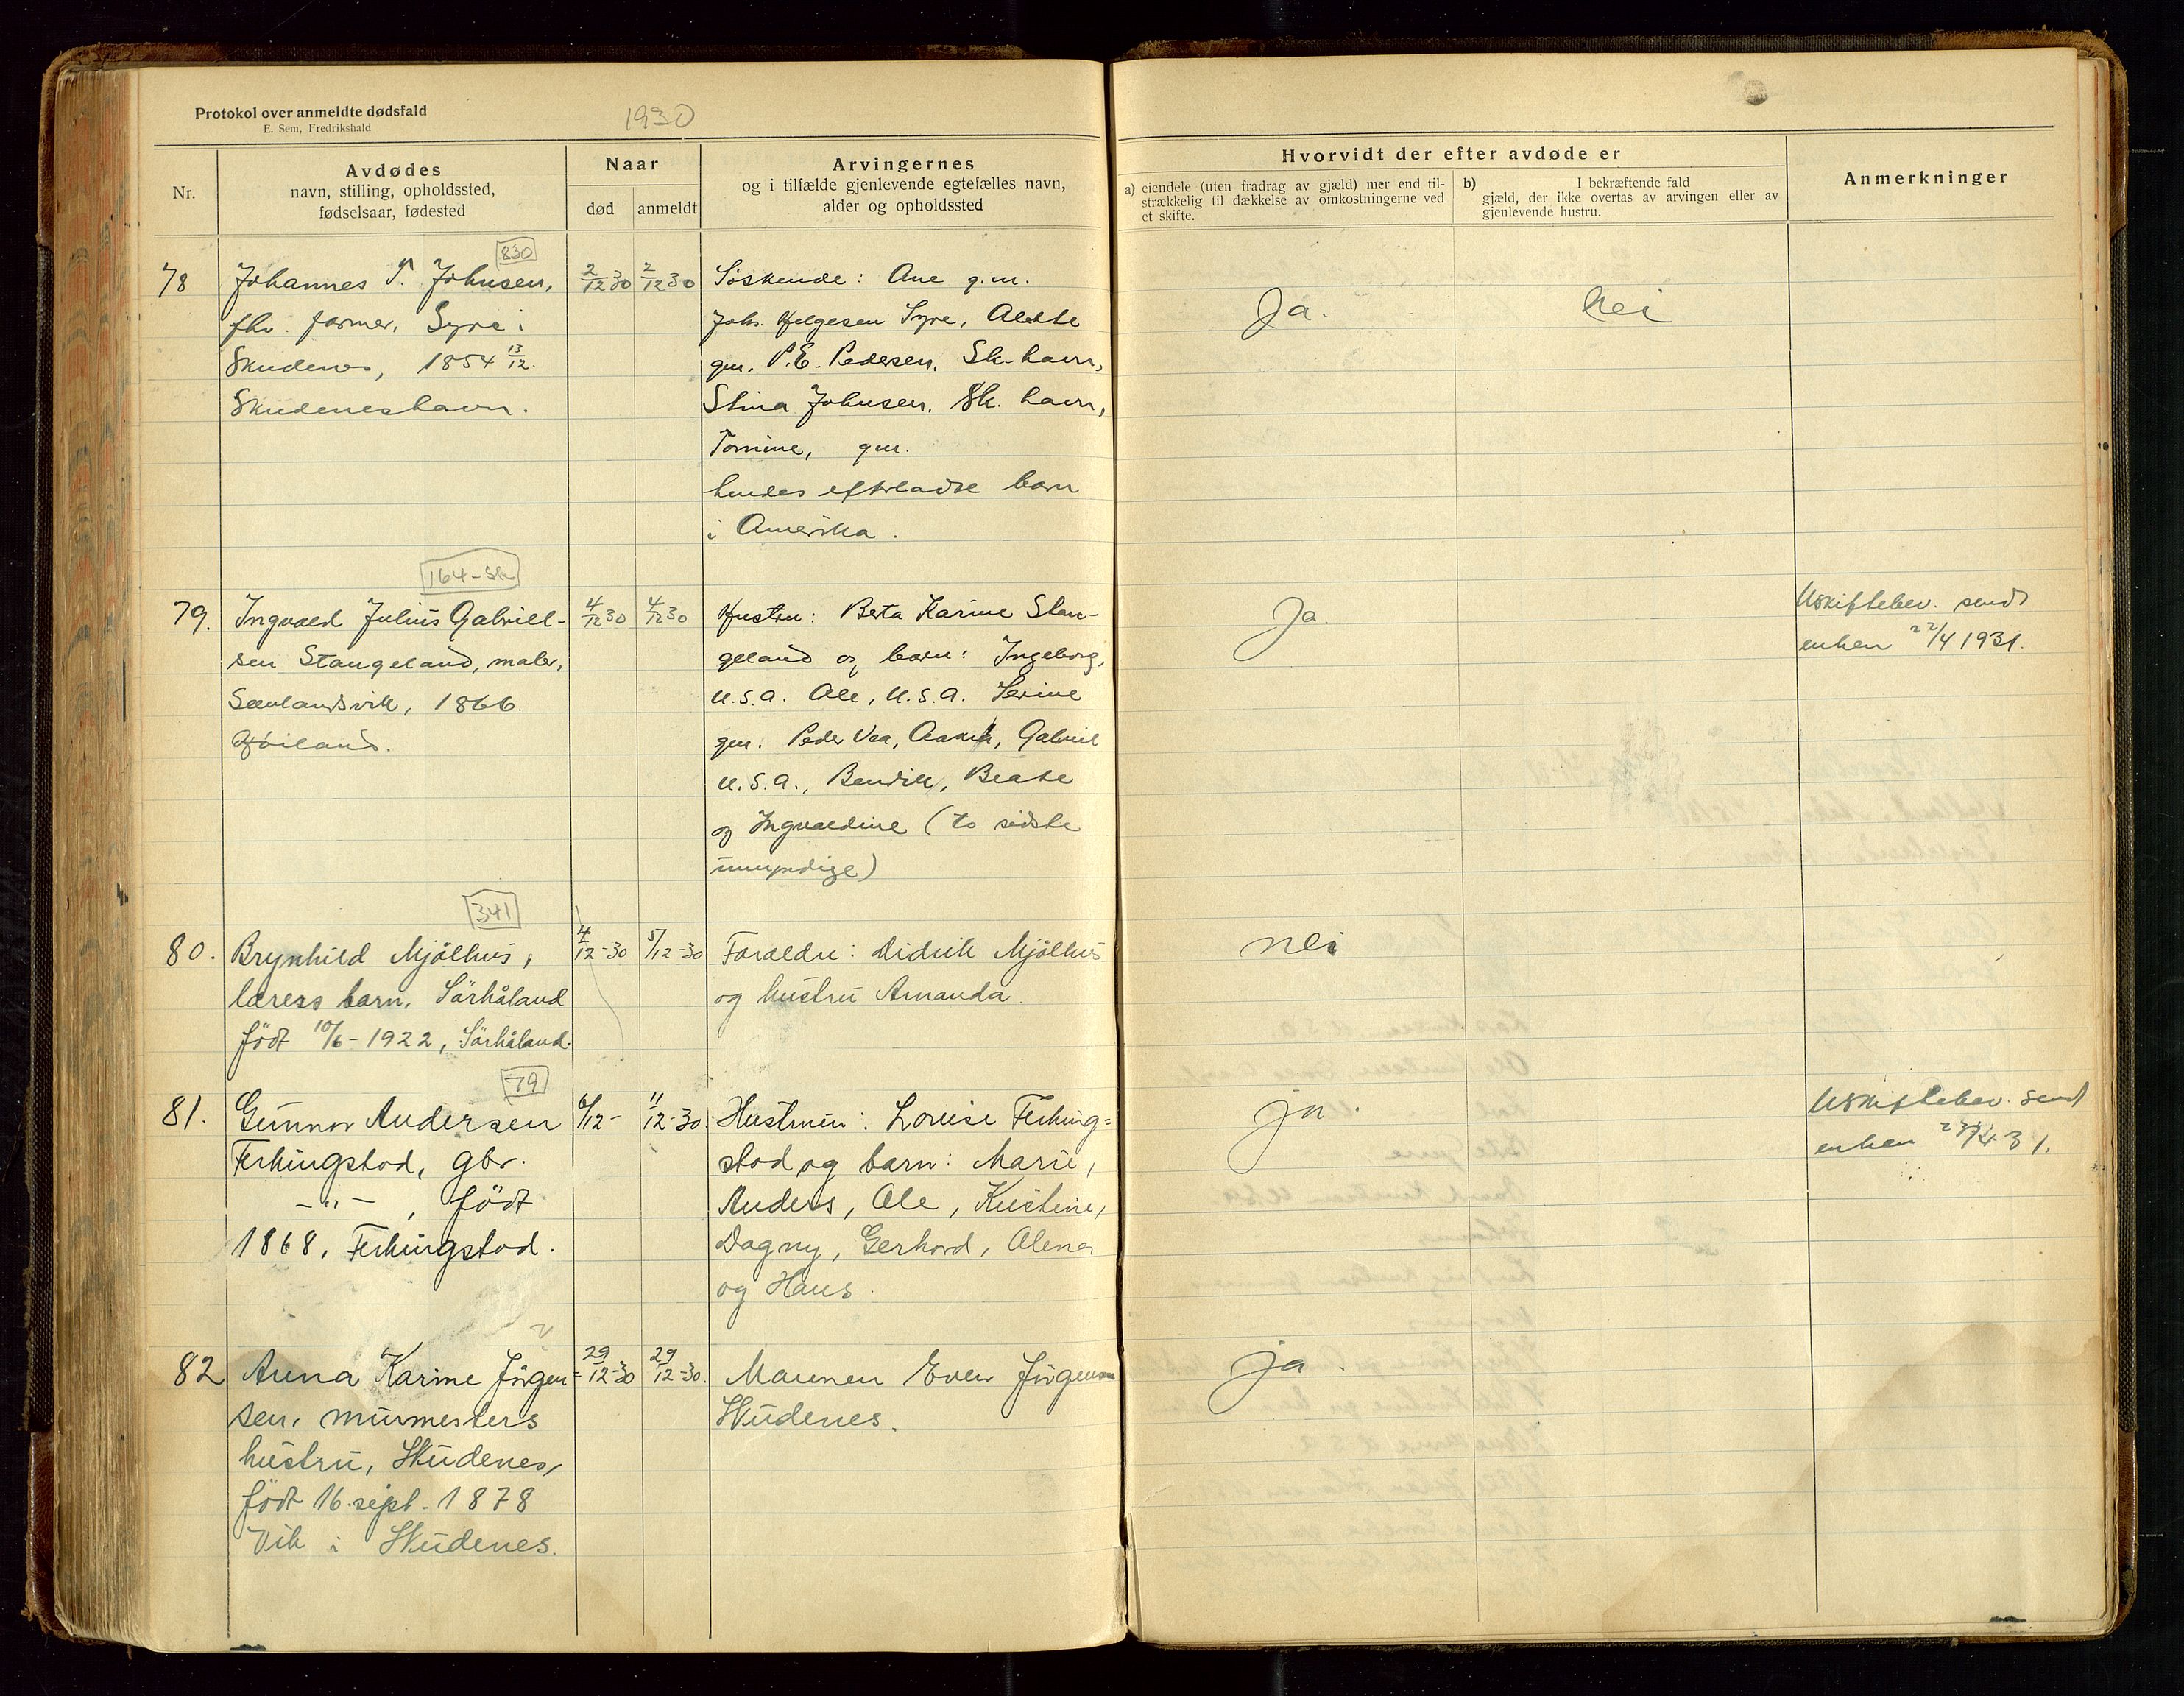 Protokol over anmeldte dødsfald
E. Sem, Fredrikshald
1930
Nr.
Avdødes
navn, stilling, opholdssted,
fødselsaar, fødested
Naar
død
anmeldt
Arvingernes
og i tilfælde gjenlevende egtefælles navn,
alder og opholdssted
Hvorvidt der efter avdøde er
a) eiendele (uten fradrag av gjæld) mer end til-
strækkelig til dækkelse av omkostningerne ved
et skifte.
b) I bekræftende fald
gjæld, der ikke overtas av arvingen eller av
gjenlevende hustru.
Anmerkninger
830
78
Johannes T. Johnsen,
fhv. farmer, Syre i
Skudenes, 1854 13/12.
Skudeneshavn.
2/12 30
2/12 30
Søskende: Ane g.m.
Johs. Helgesen Syre, Alette
gm. P.E. Pedersen, Sk-havn,
Stina Johnsen, Sk. havn,
Tomine, gm.
hendes efterladte barn
i Amerika.
Ja.
Nei
164-Sk
79.
Ingvald Julius Gabriel-
sen Stangeland, maler,
Sævlandsvik, 1866.
Høiland.
4/12 30
4/12 30
Hustru: Berta Karine Stan-
geland og barn: Ingeborg,
U.S.A. Ole, U.S.A. Serine
gm. Peder Vea, Gabriel
U.S.A., Bendik, Beate
og Ingvaldine (to sidste
umyndige)
Ja.
Uskiftebev. sendt
enken 22/4 1931.
341
80.
Brynhild Mjølhus,
lærers barn, Sørhåland
født 10/6-1922, Sørhåland.
4/12-30
5/12-30
Foraeldre: Didrik Mjølhus
og hustru Amanda.
nei
79
81.
Gunnar Andersen
Ferkingstad, gbr.
-"- , født
1868, Ferkingstad.
6/12-
11/12-30
Hustruen: Lovise Ferking=
stad og barn: Marie,
Anders, Ole, Kristine,
Dagny, Gerhard, Alena
og Hans.
ja.
Uskiftebev. sendt
enken 23/4 31.
82
Anna Karine Jørgen=
sen, murmesters
hustru, Skudenes,
født 16. sept. 1878
Vik i Skudenes.
29/12-30
29/12-30.
Mannen Even Jørgensen
Skudenes.
ja.